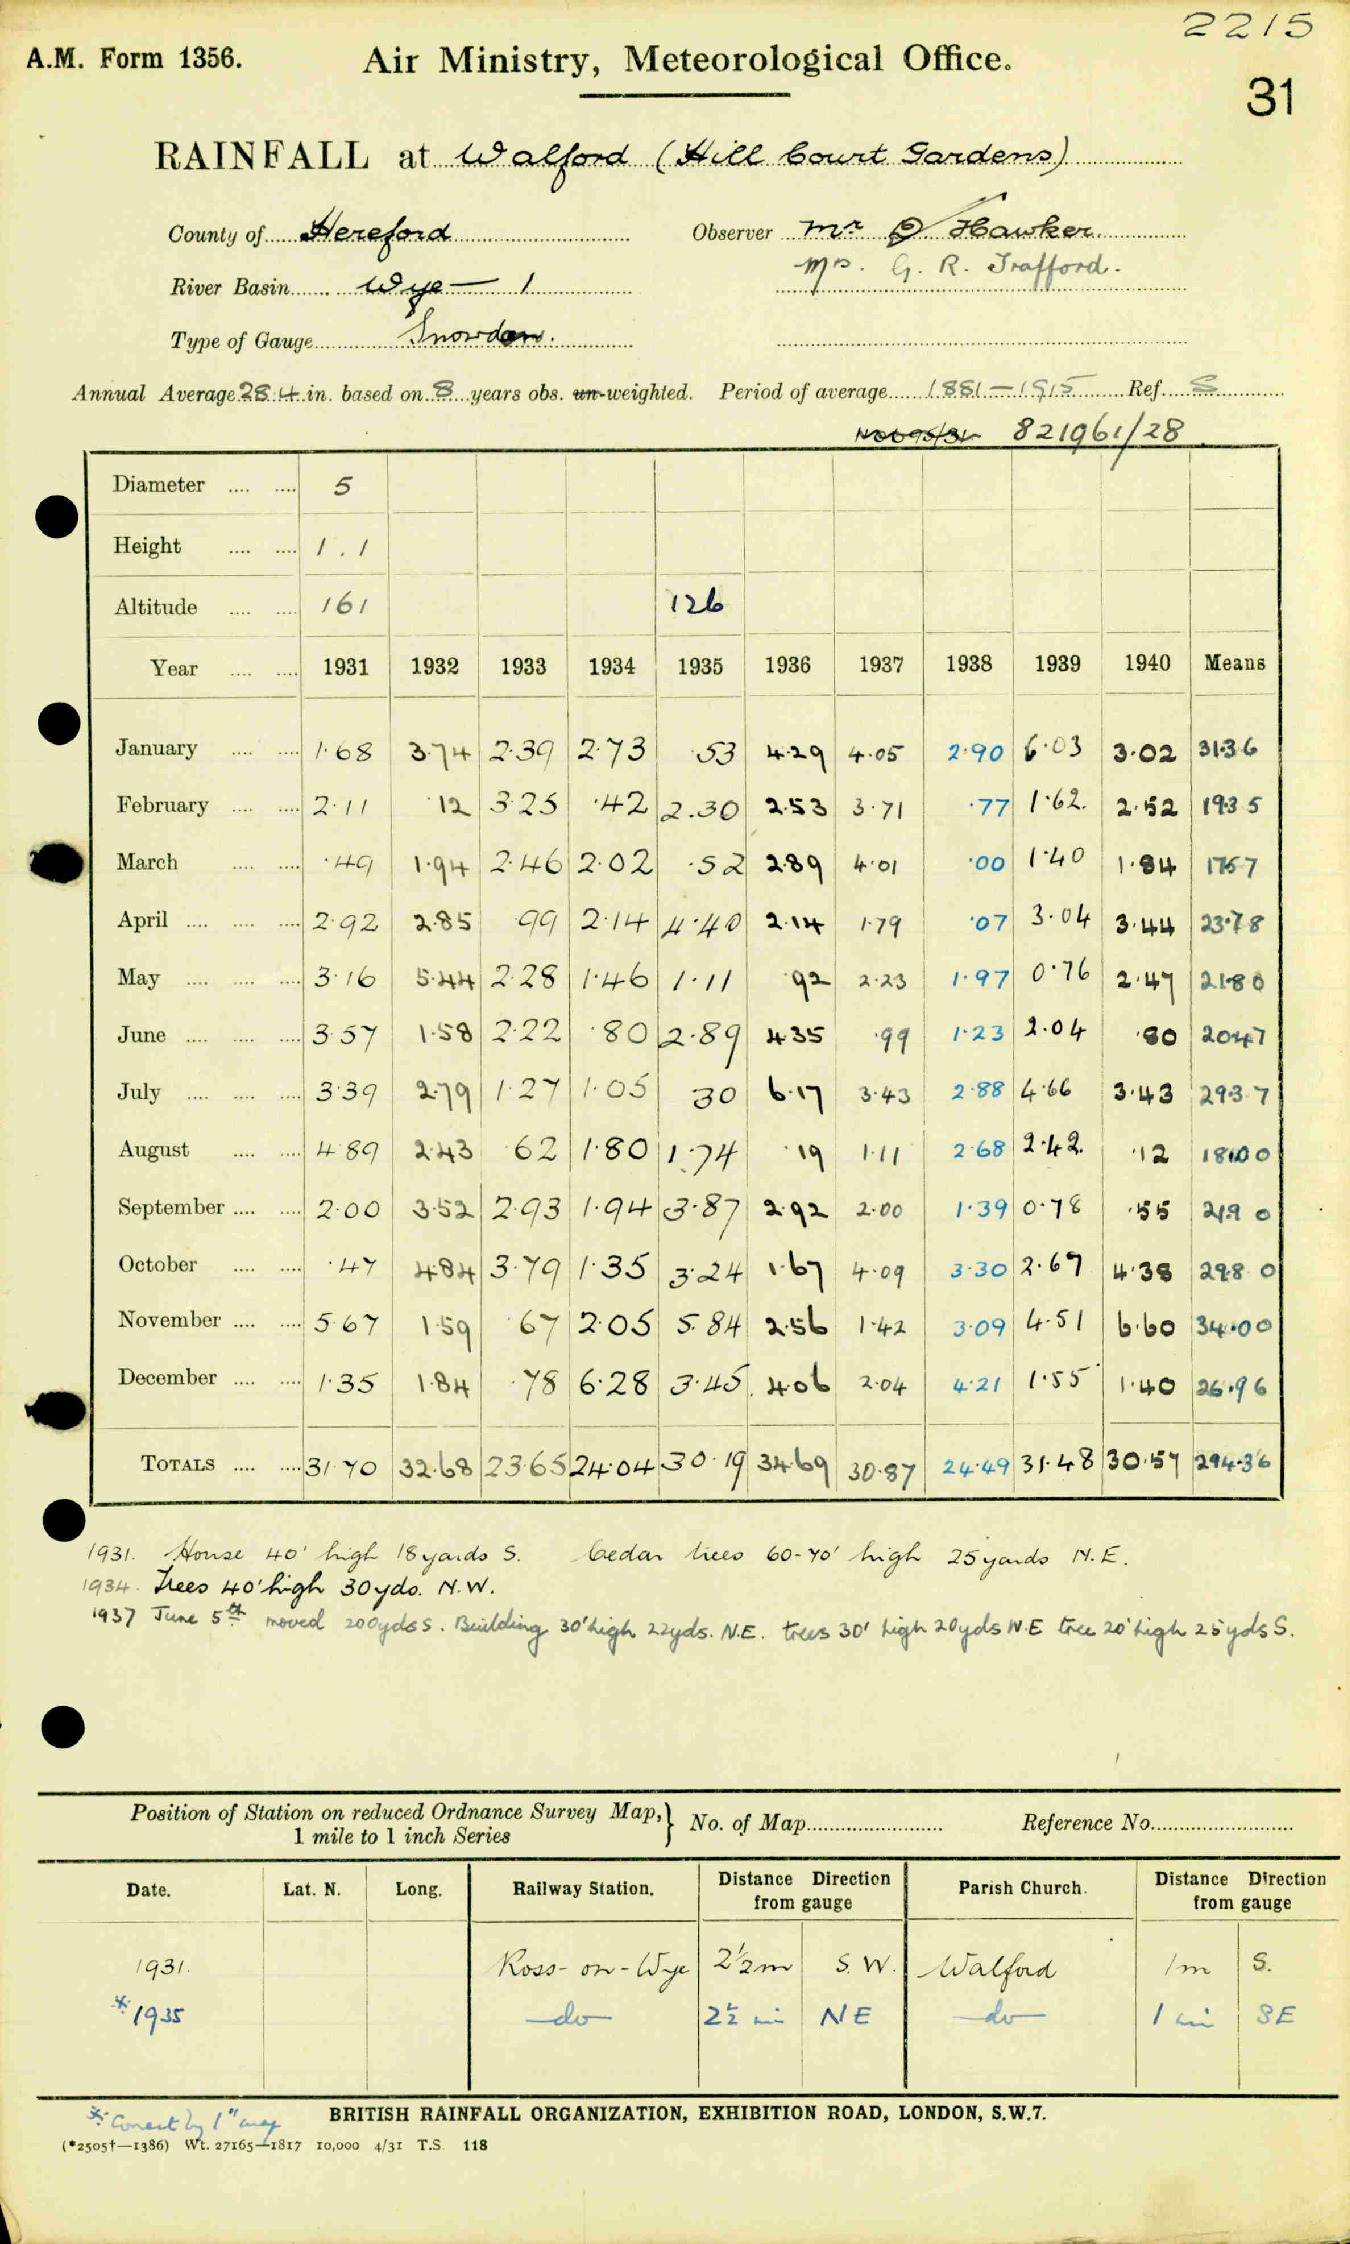 2215
A.M. Form 1356. Air Ministry, Meteorological Office.
31
RAINFALL at Walford (Hill Court Gardens)
County of Hereford Observer Mr D. Hawker.
Mrs. G. R. Trafford.
River Basin Wye — 1
Type of Gauge Snowdon.
Annual Average 28.4 in. based on 8 years obs. un-weighted. Period of average 1881–1915 Ref. S
821961/28
Diameter 5
Height 1.1
Altitude 161 126
Year 1931 1932 1933 1934 1935 1936 1937 1938 1939 1940 Means
January 1.68 3.74 2.39 2.73 .53 4.29 4.05 2.90 6.03 3.02 31.36
February 2.11 .12 3.25 .42 2.30 2.53 3.71 .77 1.62 2.52 19.35
March .49 1.94 2.46 2.02 .52 2.89 4.01 .00 1.40 1.84 17.57
April 2.92 2.85 .99 2.14 4.40 2.14 1.79 .07 3.04 3.44 23.78
May 3.16 5.44 2.28 1.46 1.11 .92 2.23 1.97 0.76 2.47 21.80
June 3.57 1.58 2.22 .80 2.89 4.35 .99 1.23 2.04 .80 20.47
July 3.39 2.79 1.27 1.05 30 6.17 3.43 2.88 4.66 3.43 29.37
August 4.89 2.43 .62 1.80 1.74 .19 1.11 2.68 2.42 .12 18.00
September 2.00 3.52 2.93 1.94 3.87 2.92 2.00 1.39 0.78 .55 21.90
October .47 4.84 3.79 1.35 3.24 1.67 4.09 3.30 2.67 4.38 29.80
November 5.67 1.59 .67 2.05 5.84 2.56 1.42 3.09 4.51 6.60 34.00
December 1.35 1.84 .78 6.28 3.45 4.06 2.04 4.21 1.55 1.40 26.96
TOTALS 31.70 32.68 23.65 24.04 30.19 34.69 30.87 24.49 31.48 30.57 294.36
1931. House 40' high 18 yards S. Cedar trees 60-70' high 25 yards N.E.
1934. Trees 40' high 30 yds. N.W.
1937 June 5th moved 200yds S. Building 30' high 22yds. N.E. trees 30' high 20yds N.E tree 20' high 25 yds S.
Position of Station on reduced Ordnance Survey Map, 1 mile to 1 inch Series } No. of Map Reference No.
Date. Lat. N. Long. Railway Station. Distance Direction from gauge Parish Church. Distance Direction from gauge
1931. Ross-on-Wye 2½m S.W. Walford 1m S.
* 1935 do 2½ mi NE do 1 mi SE
* Correct by 1" map
BRITISH RAINFALL ORGANIZATION, EXHIBITION ROAD, LONDON, S.W.7.
(*2505†—1386) Wt. 27165—1817 10,000 4/31 T.S. 118